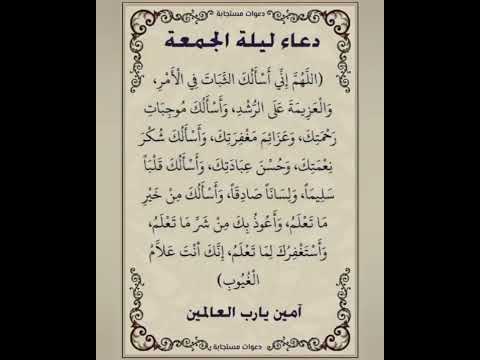 دعوات مستجابة
دعاء ليلة الجمعة
(اللَّهُمَّ إِنِّي أَسْأَلُكَ الثَّبَاتَ فِي الْأَمْرِ،
وَالْعَزِيمَةَ عَلَى الرُّشْدِ، وَأَسْأَلُكَ مُوجِبَاتِ
رَحْمَتِكَ، وَعَزَائِمَ مَغْفِرَتِكَ، وَأَسْأَلُكَ شُكْرَ
نِعْمَتِكَ، وَحُسْنَ عِبَادَتِكَ، وَأَسْأَلُكَ قَلْبَاً
سَلِيمَاً، وَلِسَاناً صَادِقَاً، وَأَسْأَلُكَ مِنْ خَيْرِ
مَا تَعْلَمُ، وَأَعُوذُ بِكَ مِنْ شَرِّ مَا تَعْلَمُ،
وَأَسْتَغْفِرُكَ لِمَا تَعْلَمُ، إِنَّكَ أَنْتَ عَلاَّمُ
الْغُيُوبِ)
آمين يارب العالمين
دعوات مستجابة